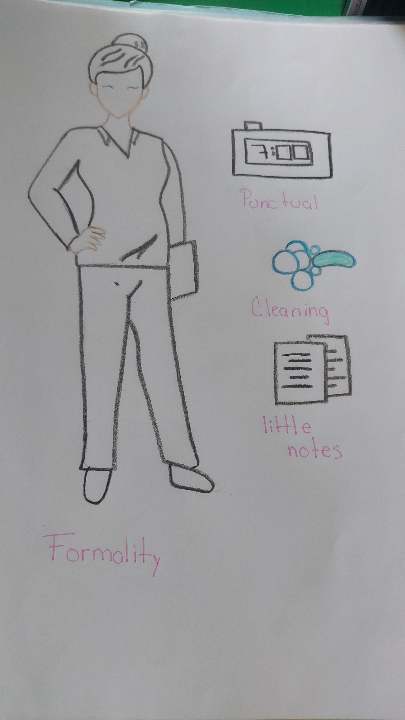 7:00
Punctual
Cleaning
little
notes
Formality